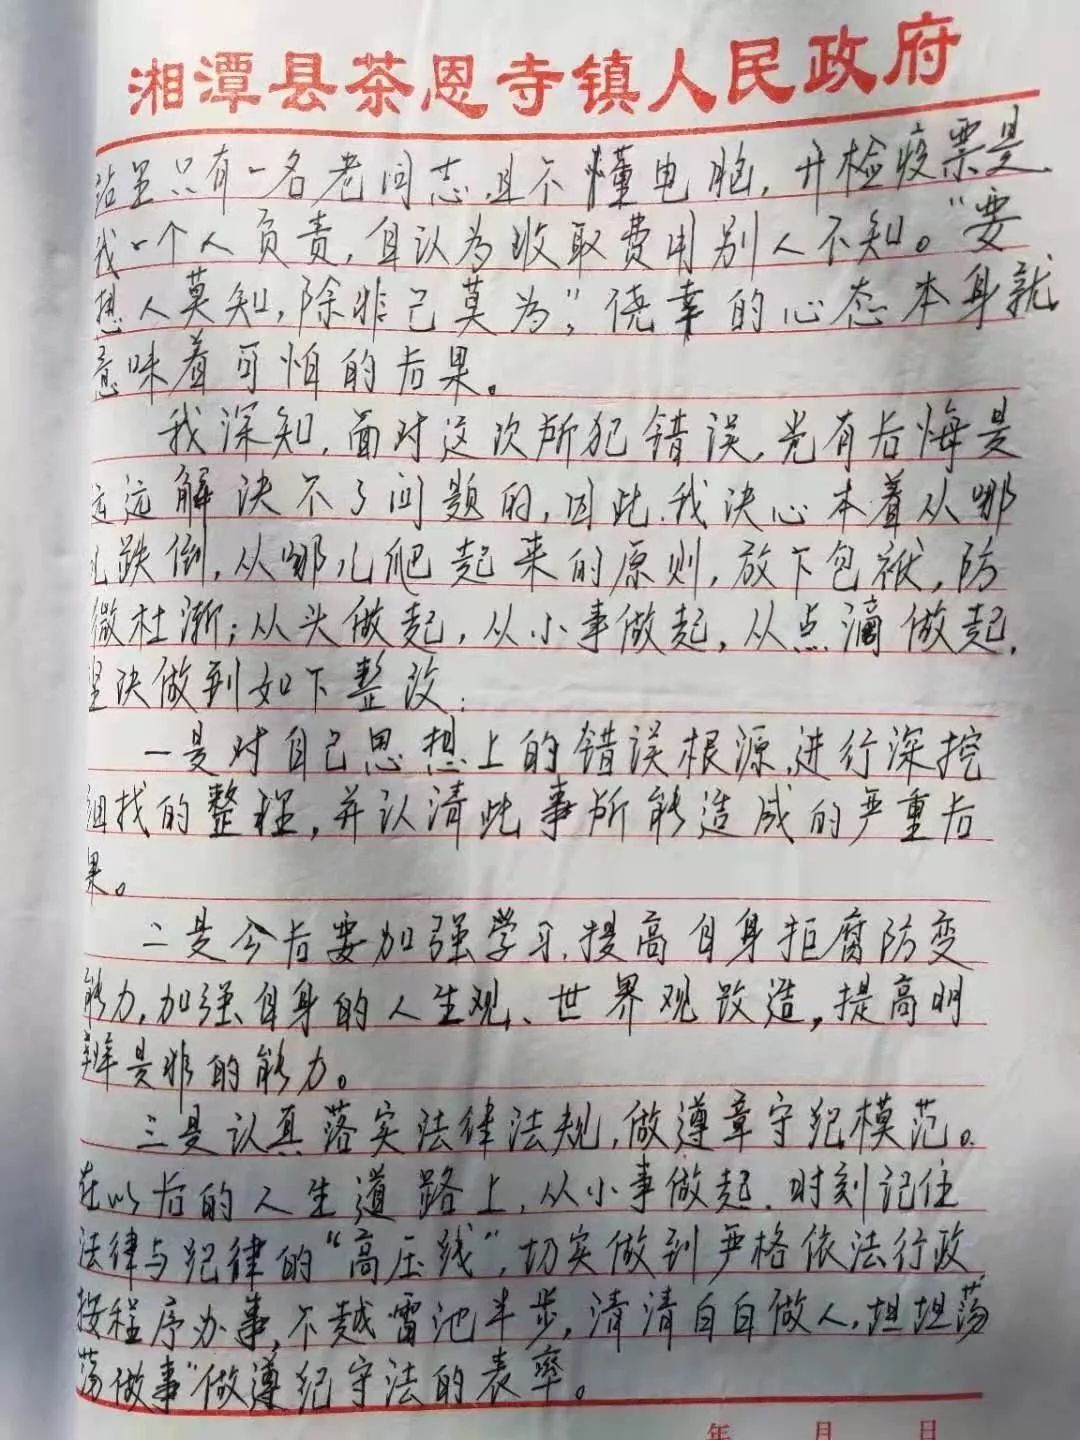 湘潭县茶恩寺镇人民政府
站里只有一名老同志,且不懂电脑,开检疫票是
我一个人负责,自认为收取费用别人不知。“要
想人莫知,除非己莫为”,侥幸的心态本身就
意味着可怕的后果。
我深知,面对这次所犯错误,光有后悔是
远远解决不了问题的,因此,我决心本着从哪
儿跌倒,从哪儿爬起来的原则,放下包袱,防
微杜渐;从头做起,从小事做起,从点滴做起,
坚决做到如下整改:
一是对自己思想上的错误根源进行深挖
细找的整理,并认清此事所能造成的严重后
果。
二是今后要加强学习,提高自身拒腐防变
能力,加强自身的人生观、世界观改造,提高明
辨是非的能力。
三是认真落实法律法规,做遵章守纪模范。
在以后的人生道路上,从小事做起,时刻记住
法律与纪律的“高压线”,切实做到严格依法行政
按程序办事,不越雷池半步,清清白白做人,坦坦荡
荡做事”做遵纪守法的表率。
年 月 日